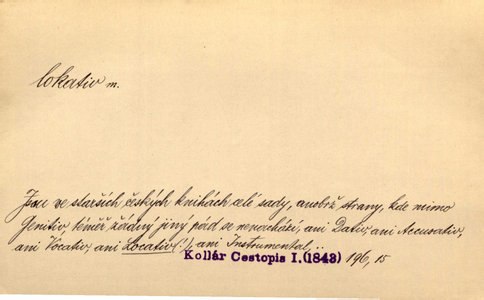 lokativ m.
Jsou ve starších českých knihách celé sady, anobrž strany, kde mimo
Genitiv, téměř žádný jiný pád se nenachází, ani Dativ, ani Accusativ,
ani Vocativ, ani Locativ (!), ani Instrumental, ..
Kollár Cestopis I.(1843) 196, 15